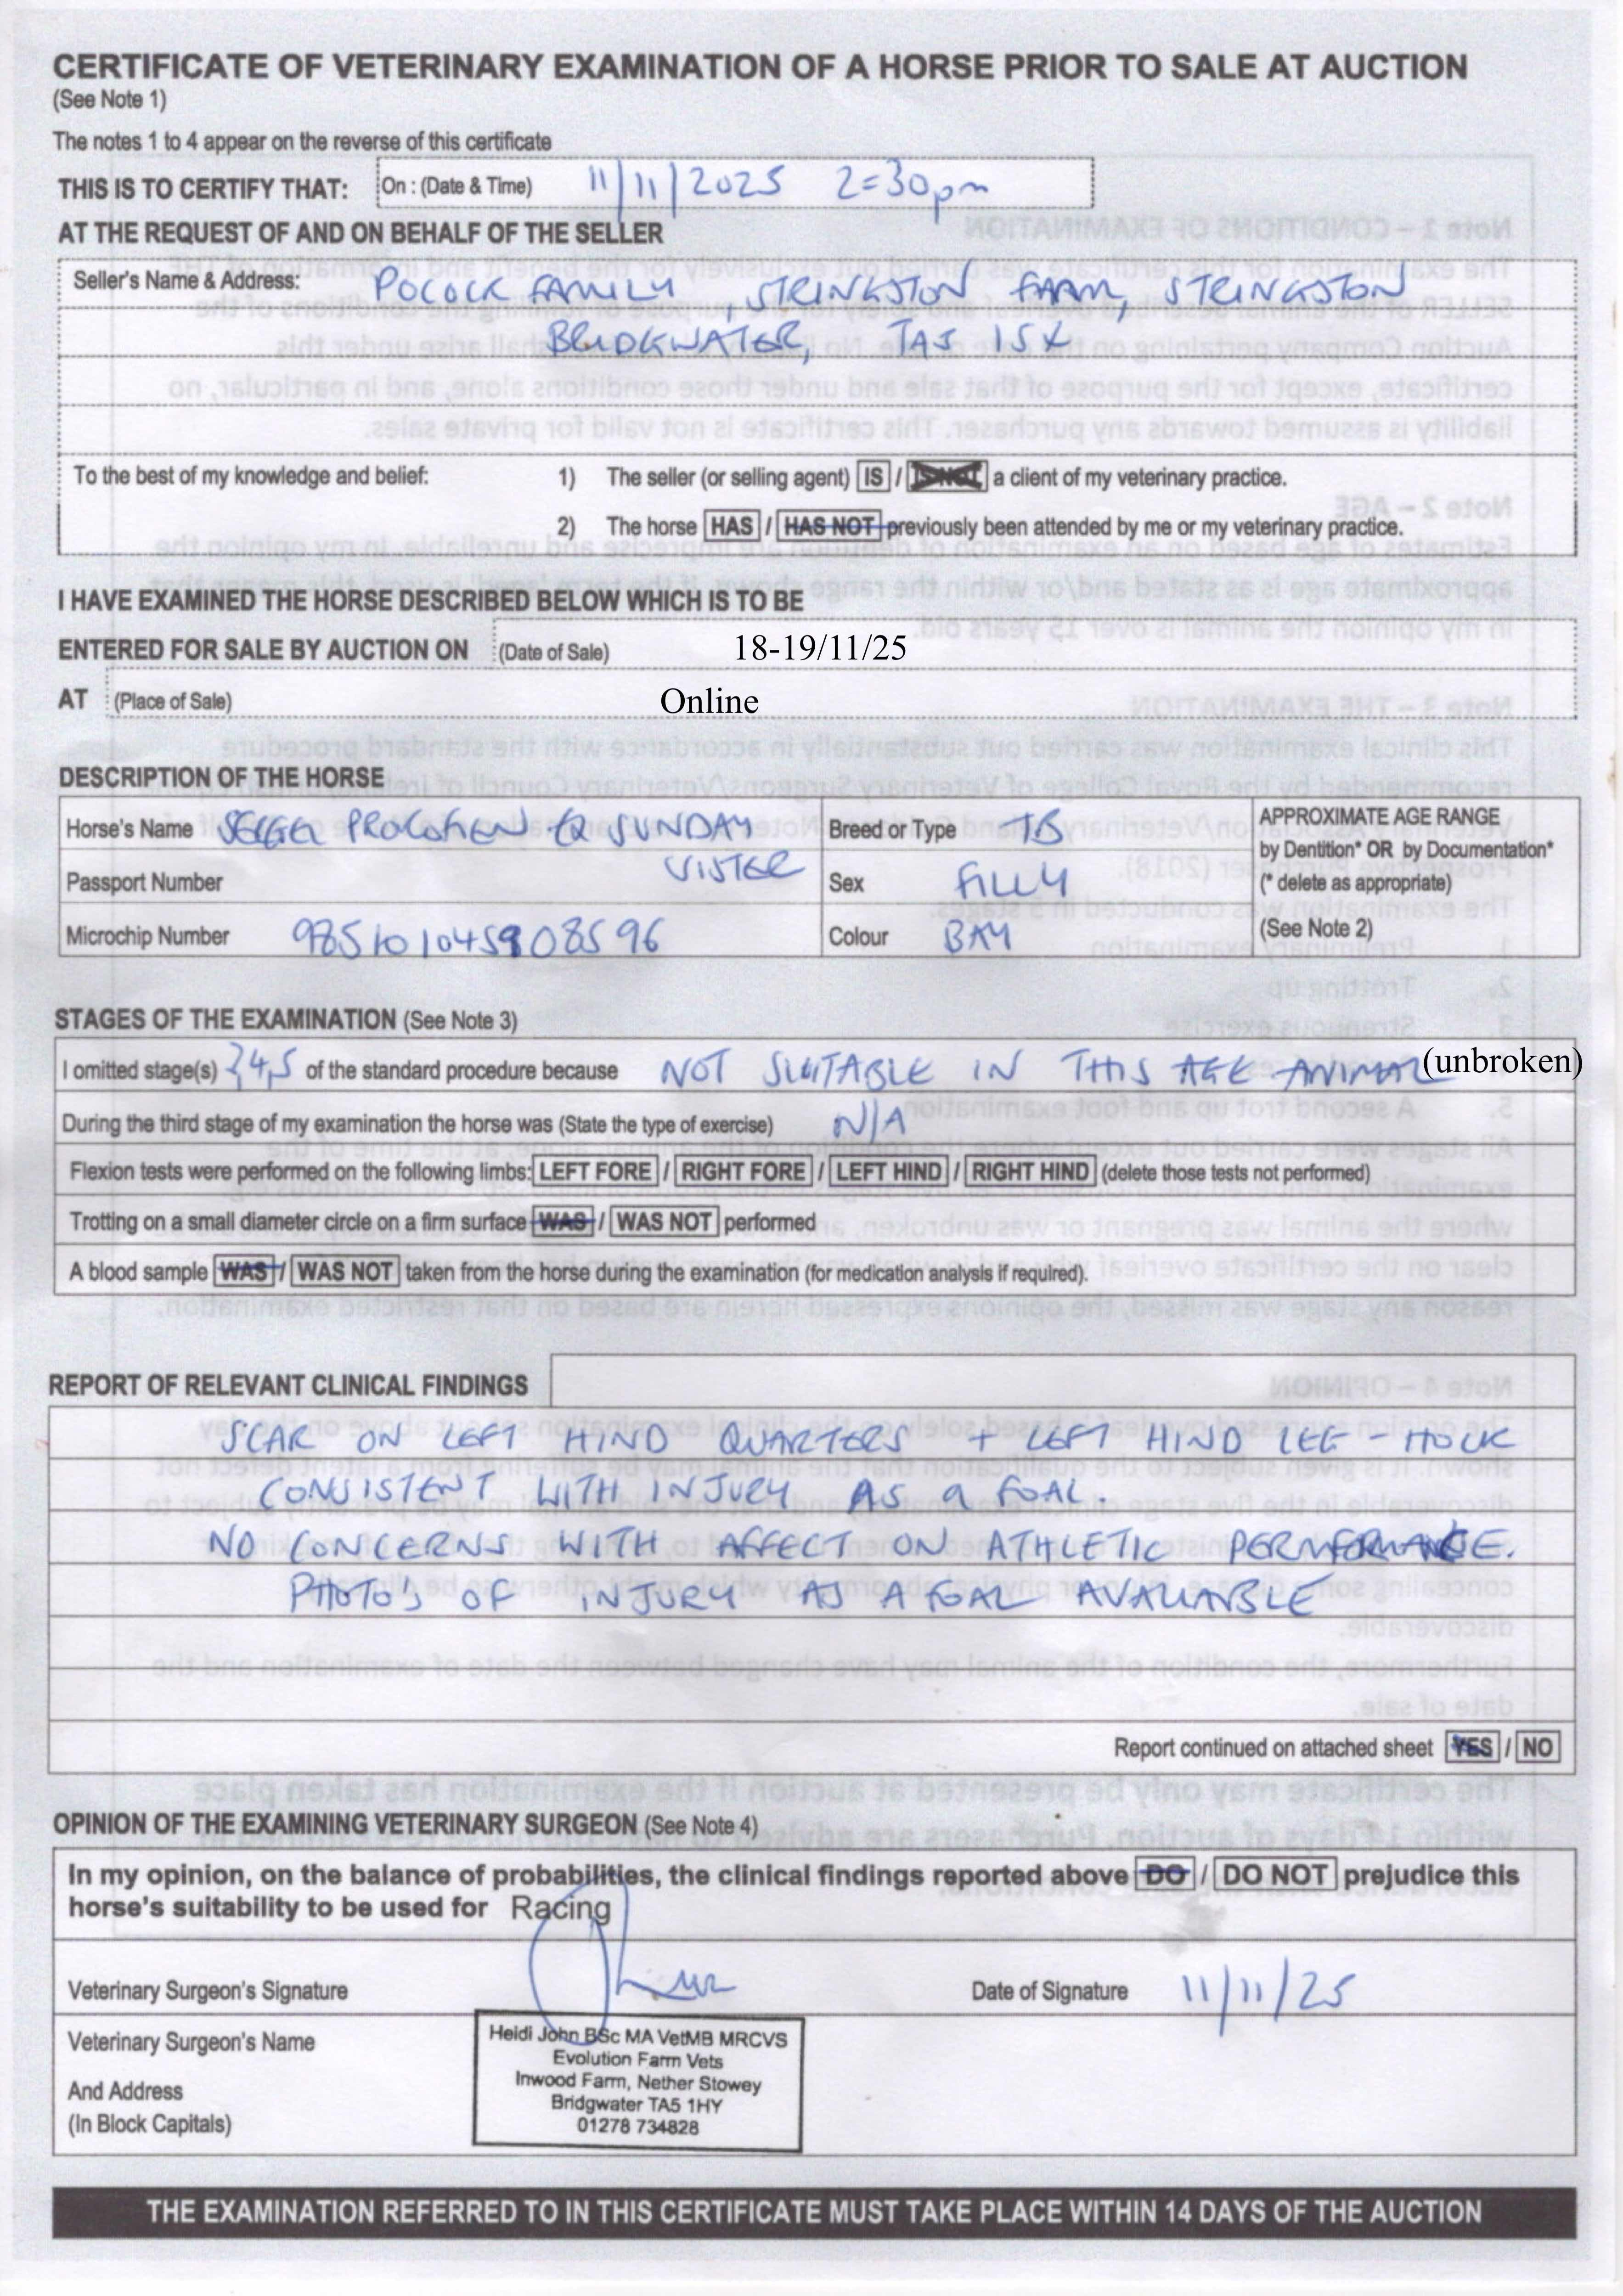 CERTIFICATE OF VETERINARY EXAMINATION OF A HORSE PRIOR TO SALE AT AUCTION
(See Note 1)
The notes 1 to 4 appear on the reverse of this certificate
THIS IS TO CERTIFY THAT: On : (Date & Time) 11/11/2025 2=30pm
AT THE REQUEST OF AND ON BEHALF OF THE SELLER
Seller's Name & Address: POCOCK FAMILY, STRINGSTON FARM, STRINGSTON
BRIDGWATER, TA5 1SX
To the best of my knowledge and belief: 1) The seller (or selling agent) IS / IS NOT a client of my veterinary practice.
2) The horse HAS / HAS NOT previously been attended by me or my veterinary practice.
I HAVE EXAMINED THE HORSE DESCRIBED BELOW WHICH IS TO BE
ENTERED FOR SALE BY AUCTION ON (Date of Sale) 18-19/11/25
AT (Place of Sale) Online
DESCRIPTION OF THE HORSE
Horse's Name SUNDAY Breed or Type TB APPROXIMATE AGE RANGE
by Dentition* OR by Documentation*
Passport Number Sex FILLY (* delete as appropriate)
Microchip Number Colour BAY (See Note 2)
STAGES OF THE EXAMINATION (See Note 3)
I omitted stage(s) 3,4,5 of the standard procedure because NOT SUITABLE IN THIS AGE ANIMAL (unbroken)
During the third stage of my examination the horse was (State the type of exercise) N/A
Flexion tests were performed on the following limbs: LEFT FORE / RIGHT FORE / LEFT HIND / RIGHT HIND (delete those tests not performed)
Trotting on a small diameter circle on a firm surface WAS / WAS NOT performed
A blood sample WAS / WAS NOT taken from the horse during the examination (for medication analysis if required).
REPORT OF RELEVANT CLINICAL FINDINGS
SCAR ON LEFT HIND QUARTERS + LEFT HIND LEG - HOCK
CONSISTENT WITH INJURY AS A FOAL.
NO CONCERNS WITH AFFECT ON ATHLETIC PERFORMANCE.
PHOTO'S OF INJURY AS A FOAL AVAILABLE
Report continued on attached sheet YES / NO
OPINION OF THE EXAMINING VETERINARY SURGEON (See Note 4)
In my opinion, on the balance of probabilities, the clinical findings reported above DO / DO NOT prejudice this
horse's suitability to be used for Racing
Veterinary Surgeon's Signature Date of Signature 11/11/25
Veterinary Surgeon's Name
And Address
(In Block Capitals)
Heidi John BSc MA VetMB MRCVS
Evolution Farm Vets
Inwood Farm, Nether Stowey
Bridgwater TA5 1HY
01278 734828
THE EXAMINATION REFERRED TO IN THIS CERTIFICATE MUST TAKE PLACE WITHIN 14 DAYS OF THE AUCTION